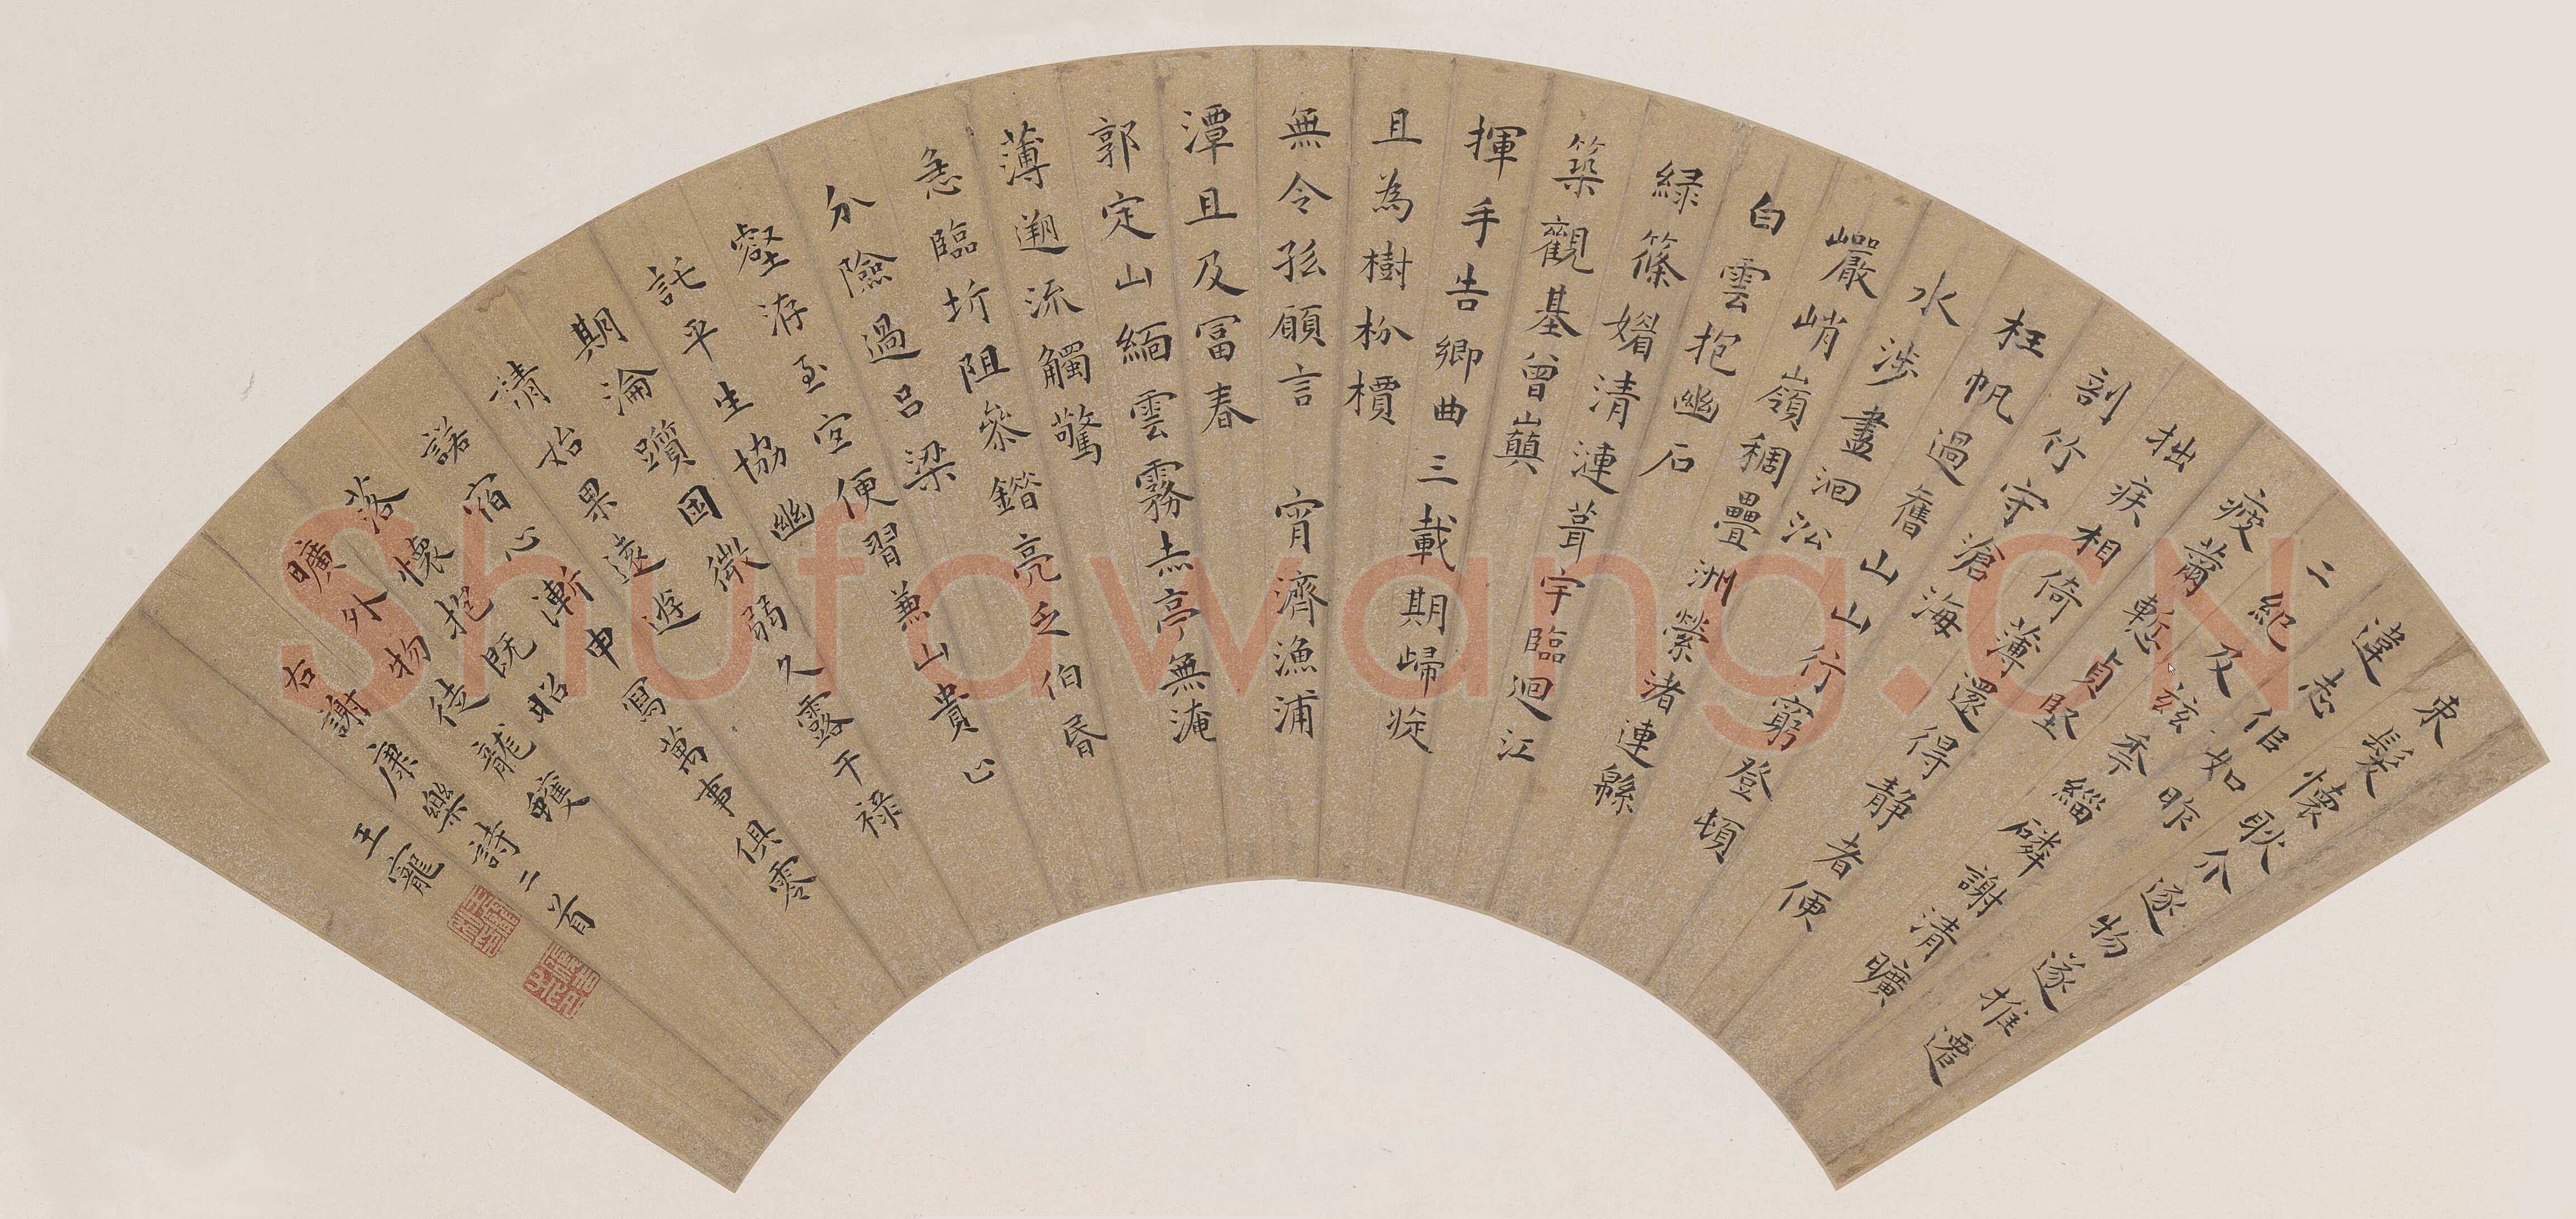 束髮懷耿介逐物遂推遷
違志佀如昨
二紀及兹秊緇磷謝清曠
疲薾慙貞堅
拙疾相倚薄還得静者便
剖竹守滄海
枉帆過舊山山行窮登頓
水涉盡洄㳂
巖峭嶺稠疊洲縈渚連緜
白雲抱幽石
緑篠媚清漣葺宇臨迴江
築觀基曾巔
揮手告鄉曲三載期歸旋
且為樹枌檟
無令孤願言 宵濟漁浦
潭且及富春
郭定山緬雲霧赤亭無淹
薄遡流觸驚
急臨圻阻參錯亮乏伯昏
分險過呂梁
壑洊至宜便習兼山貴止
託平生協幽
期淪躓困微弱久露干祿
請始果遠遊
諾宿心漸申寫萬事俱零
落懷抱既昭
曠外物徒龍蠖
右謝康樂詩二首
王寵
Shufawang.CN